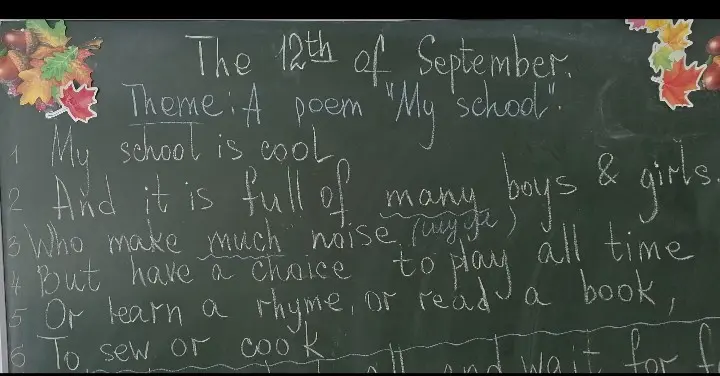 The 12th of September.
Theme: A poem "My school".
1 My school is cool
2 And it is full of many boys & girls.
3 Who make much noise (шум)
4 But have a choice to play all time
5 Or learn a rhyme, or read a book,
6 To sew or cook
all and wait for